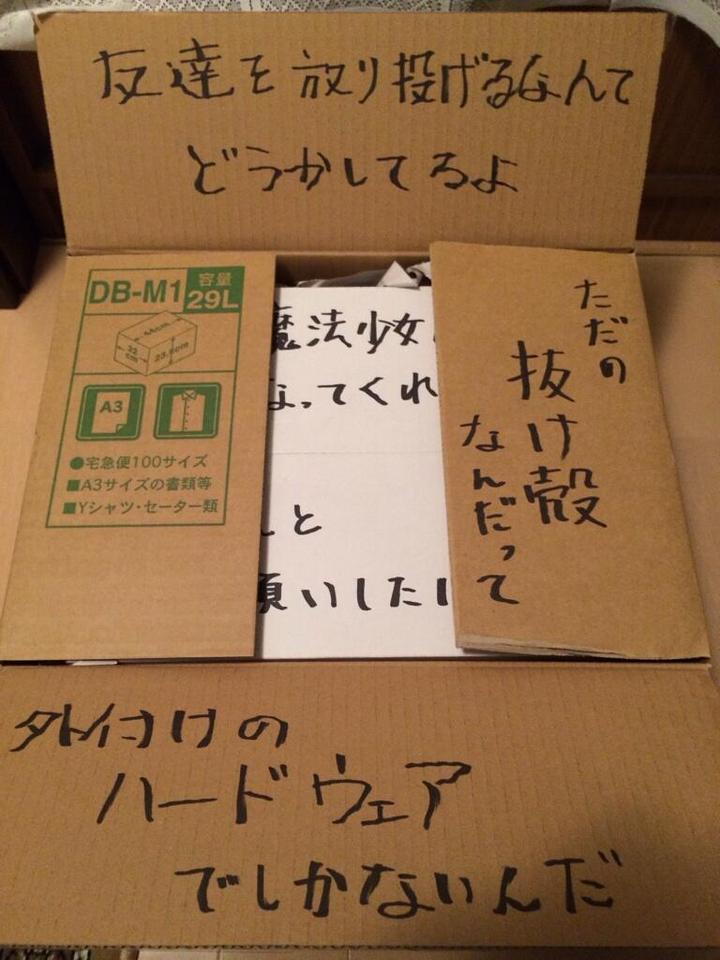 友達を放り投げるなんて
どうかしてるよ
DB-M1
容量
29L
44cm
32
cm
A3
●宅急便100サイズ
■A3サイズの書類等
■Yシャツ・セーター類
魔法少女
なってくれ
と
願いした
ただの
抜け殻
なんだって
外付けの
ハードウェア
でしかないんだ